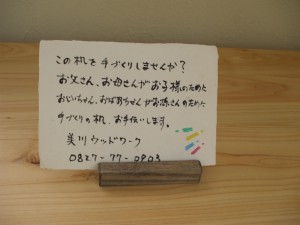 この机を手づくりしませんか？
お父さん、お母さんがお子様のために
おじいちゃん、おばあちゃんがお孫さんのために
手づくりの机、お手伝いします。
美川ウッドワーク
0827-77-0903